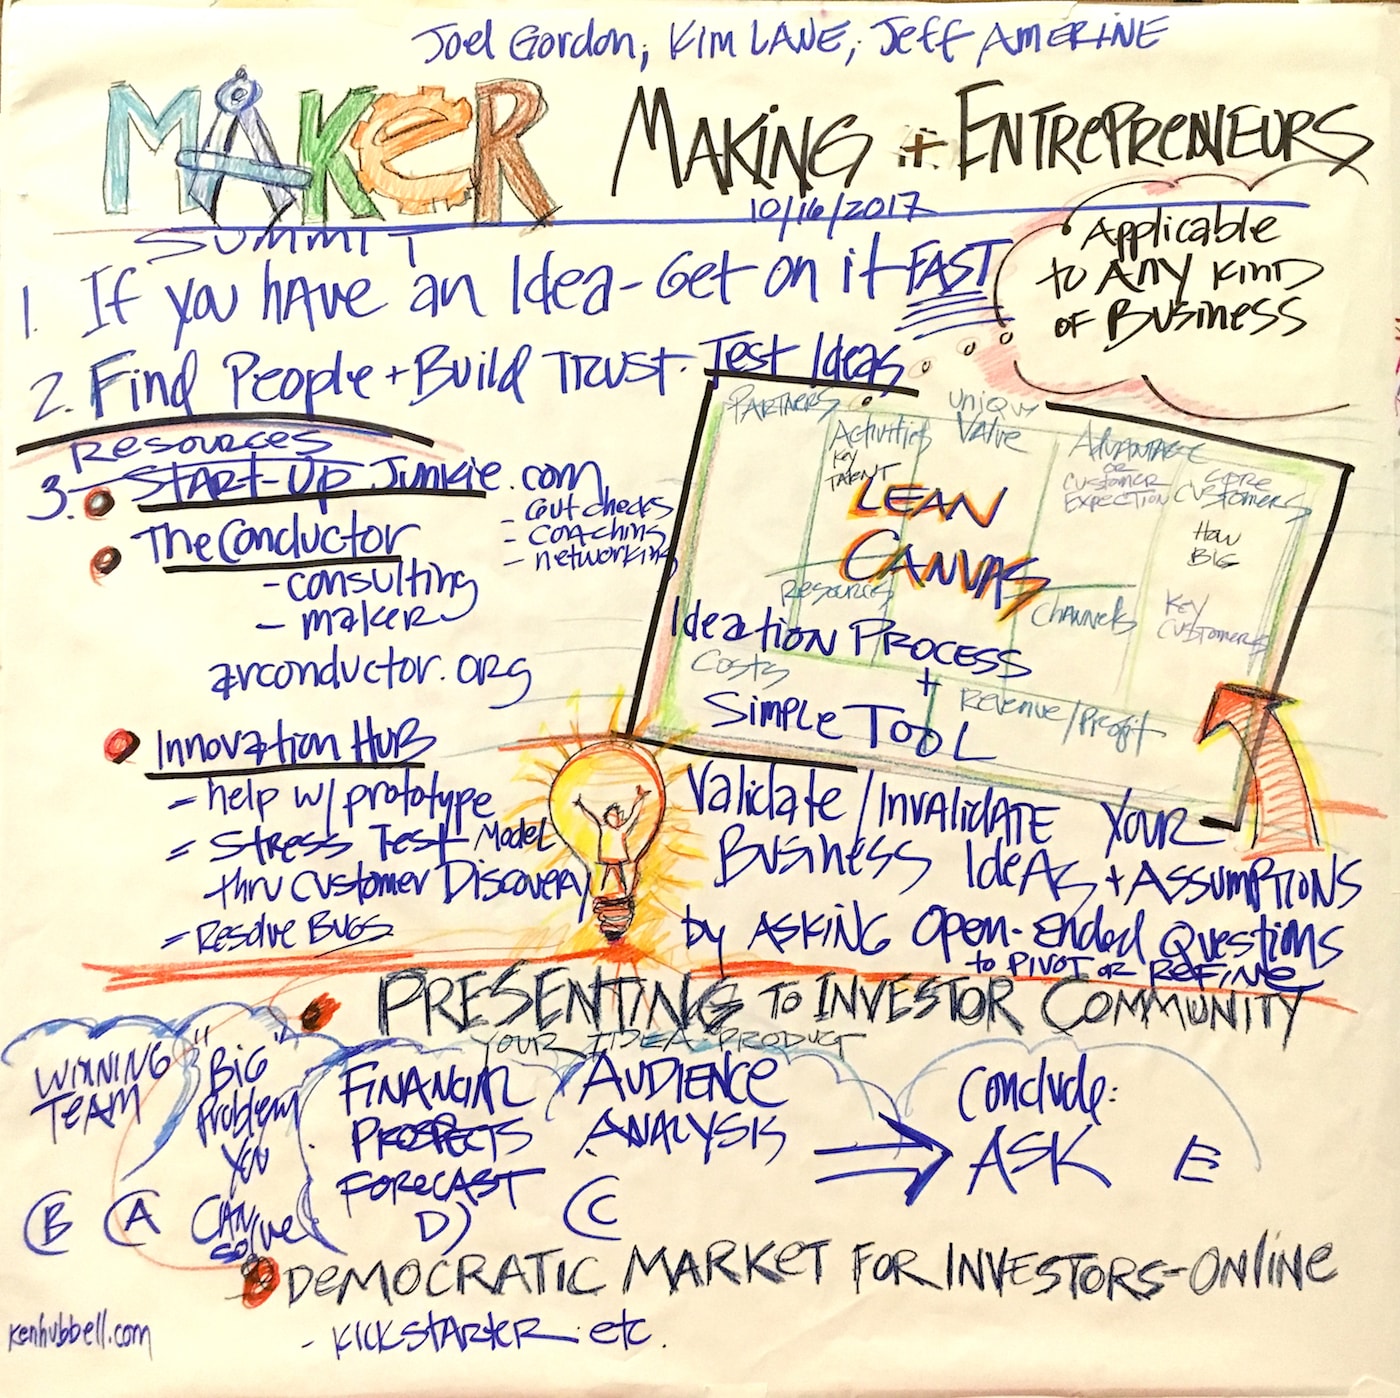 Joel Gordon, Kim LANE, Jeff AMERINE
MAKER
SUMMIT
MAKING + ENTREPRENEURS
10/16/2017
Applicable
to ANY KIND
OF BUSINESS
1. If you have an Idea - Get on it FAST
2. Find People + Build TRUST. Test Ideas
Resources
3. START-UP Junkie.com
- Gut checks
- coaching
- networking
The Conductor
- consulting
- maker
arconductor.org
Innovation HUB
- help w/ prototype
= Stress Test Model
thru Customer Discovery
= Resolve Bugs
PARTNERS
Activities
Key
TALENT
Unique
Value
ADVANTAGE
OR
CUSTOMER
EXPECTION
CORE
CUSTOMERS
How
BIG
LEAN
CANVAS
Resources
Channels
Key
Customers
Ideation Process
+
Simple TOOL
Costs
Revenue/Profit
Validate/INVALIDATE YOUR
Business IdeAs + ASSUMPTIONS
by ASKING Open-Ended Questions
to PIVOT or REFINE
PRESENTING TO INVESTOR COMMUNITY
YOUR IDEA PRODUCT
WINNING
TEAM
B
"BIG"
Problem
You
CAN
solve
A
FINANCIAL
PROSPECTS
FORECAST
D)
AUDIENCE
ANALYSIS
C
Conclude:
ASK
E
DEMOCRATIC MARKET FOR INVESTORS-ONline
- KICKSTARTER etc.
kenhubbell.com